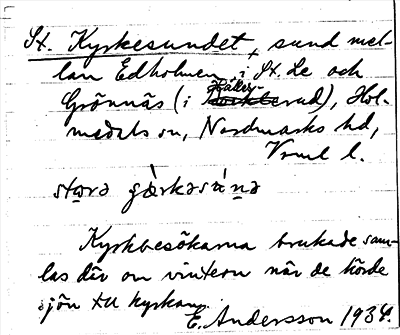 St. Kyrkesundet, sund mel-
lan Edholmen i St. Le och
Grönnäs (i Häller-rud), Hol-
medals sn, Nordmarks hd,
Vrml l.
stɷrə çæ̀rkəsúnə
Kyrkbesökarna brukade sam-
las där om vintern när de körde
sjön till kyrkan.
E. Andersson 1934.